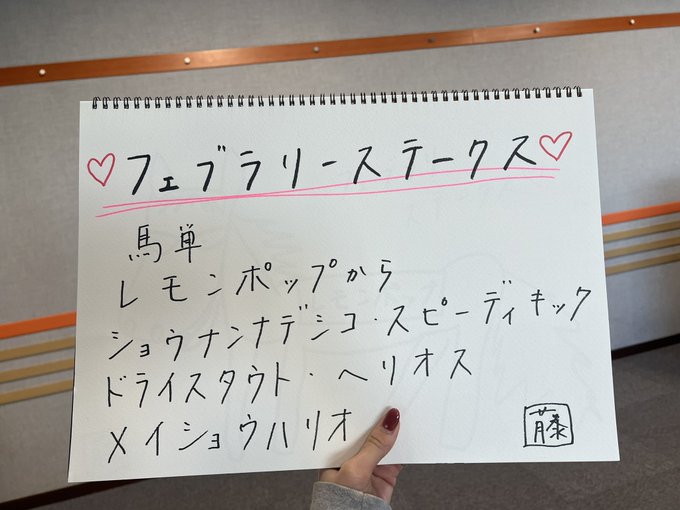 ♡フェブラリーステークス♡
馬単
レモンポップから
ショウナンナデシコ・スピーディキック
ドライスタウト・ヘリオス
メイショウハリオ
藤